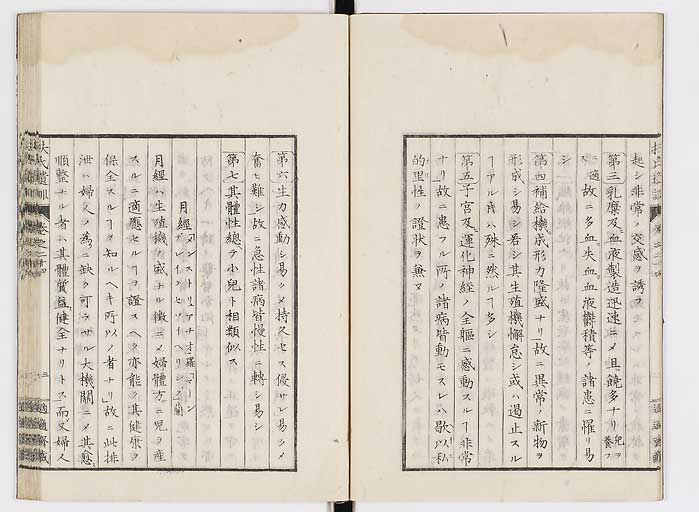 起シ非常ノ交感ヲ誘フ
第三乳糜及血液製造迅速ニメ且饒多ナリ兒ヲ養フ
ニ適故ニ多血失血血液鬱積等ノ諸患ニ罹リ易
シ
第四補給機成形力隆盛ナリ故ニ異常ノ新物ヲ
形成シ易シ若シ其生殖機懈怠シ或ハ遏止スル
ヿアル片ハ殊ニ然ルヿ多シ
第五子宮及運化神經ノ全軀ニ感動スルヿ非常
ナリ故ニ患フル所ノ諸病皆動モスレハ歇以私
的里性ノ證狀ヲ兼ヌ
第六生力感動シ易クメ持久セス侵サレ易クメ
奮ヒ難シ故ニ急性諸病皆慢性ニ轉シ易シ
第七其體性總テ小兒ト相類似ス
月經
月經ハ生殖機ノ盛ナル徵ニメ婦體方ニ兒ヲ産
スルニ適應セルヿヲ證スヘク亦能ク其健康ヲ
保全スルヿヲ知ルヘキ所以ノ者ナリ故ニ此排
泄ハ婦人ノ爲ニ缺ク可ラサル大機關ニメ其愈
順整ナル者ハ其體質益健全ナリトス而メ婦人
扶氏遺訓
卷之二十四
二
適適齋藏